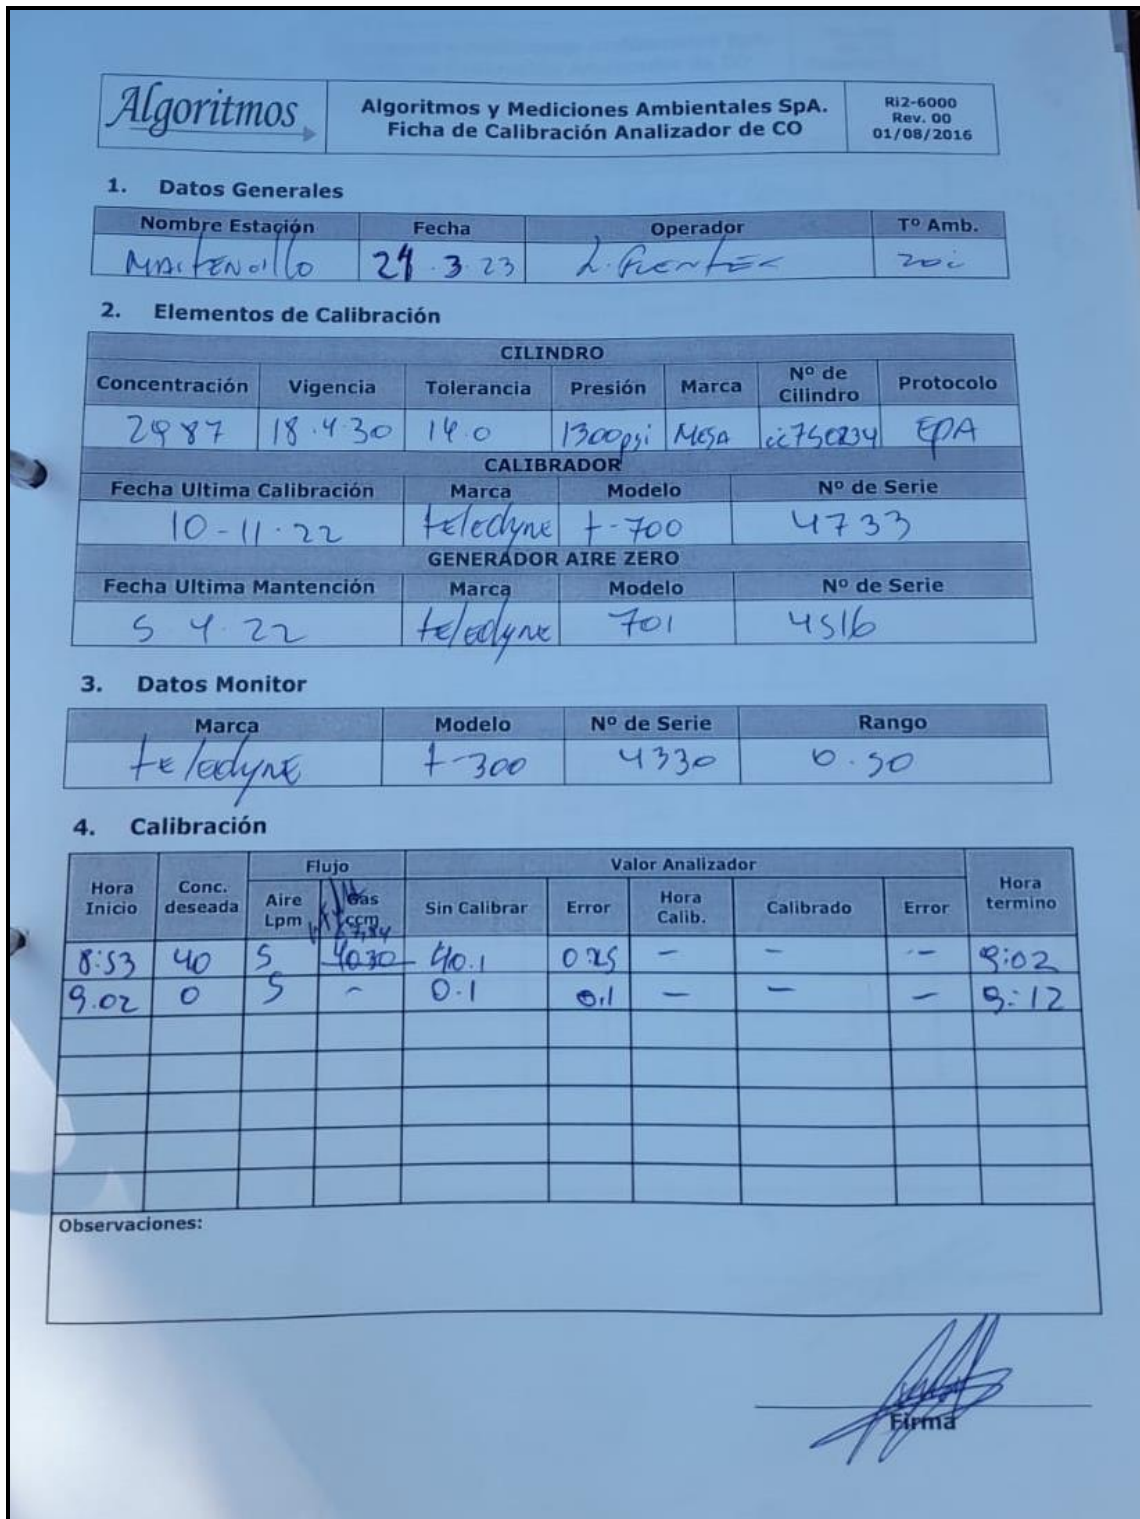 Algoritmos
Algoritmos y Mediciones Ambientales SpA.
Ficha de Calibración Analizador de CO
Ri2-6000
Rev. 00
01/08/2016
1. Datos Generales
Nombre Estación Fecha Operador Tº Amb.
MAITENCILLO 24.3.23 L. FUENTES
2. Elementos de Calibración
CILINDRO
Concentración Vigencia Tolerancia Presión Marca Nº de Cilindro Protocolo
2987 18.4.30 14.0 1300psi MESA EPA
CALIBRADOR
Fecha Ultima Calibración Marca Modelo Nº de Serie
10-11.22 teledyne t-700 4733
GENERADOR AIRE ZERO
Fecha Ultima Mantención Marca Modelo Nº de Serie
5 4.22 teledyne 701 4516
3. Datos Monitor
Marca Modelo Nº de Serie Rango
teledyne t-300 4330 0.50
4. Calibración
Flujo Valor Analizador
Hora Inicio Conc. deseada Aire Lpm Gas ccm Sin Calibrar Error Hora Calib. Calibrado Error Hora termino
67,84
8:53 40 5 4030 40.1 0.25 - - - 9:02
9.02 0 5 - 0.1 0.1 - - - 9:12
Observaciones:
Firma